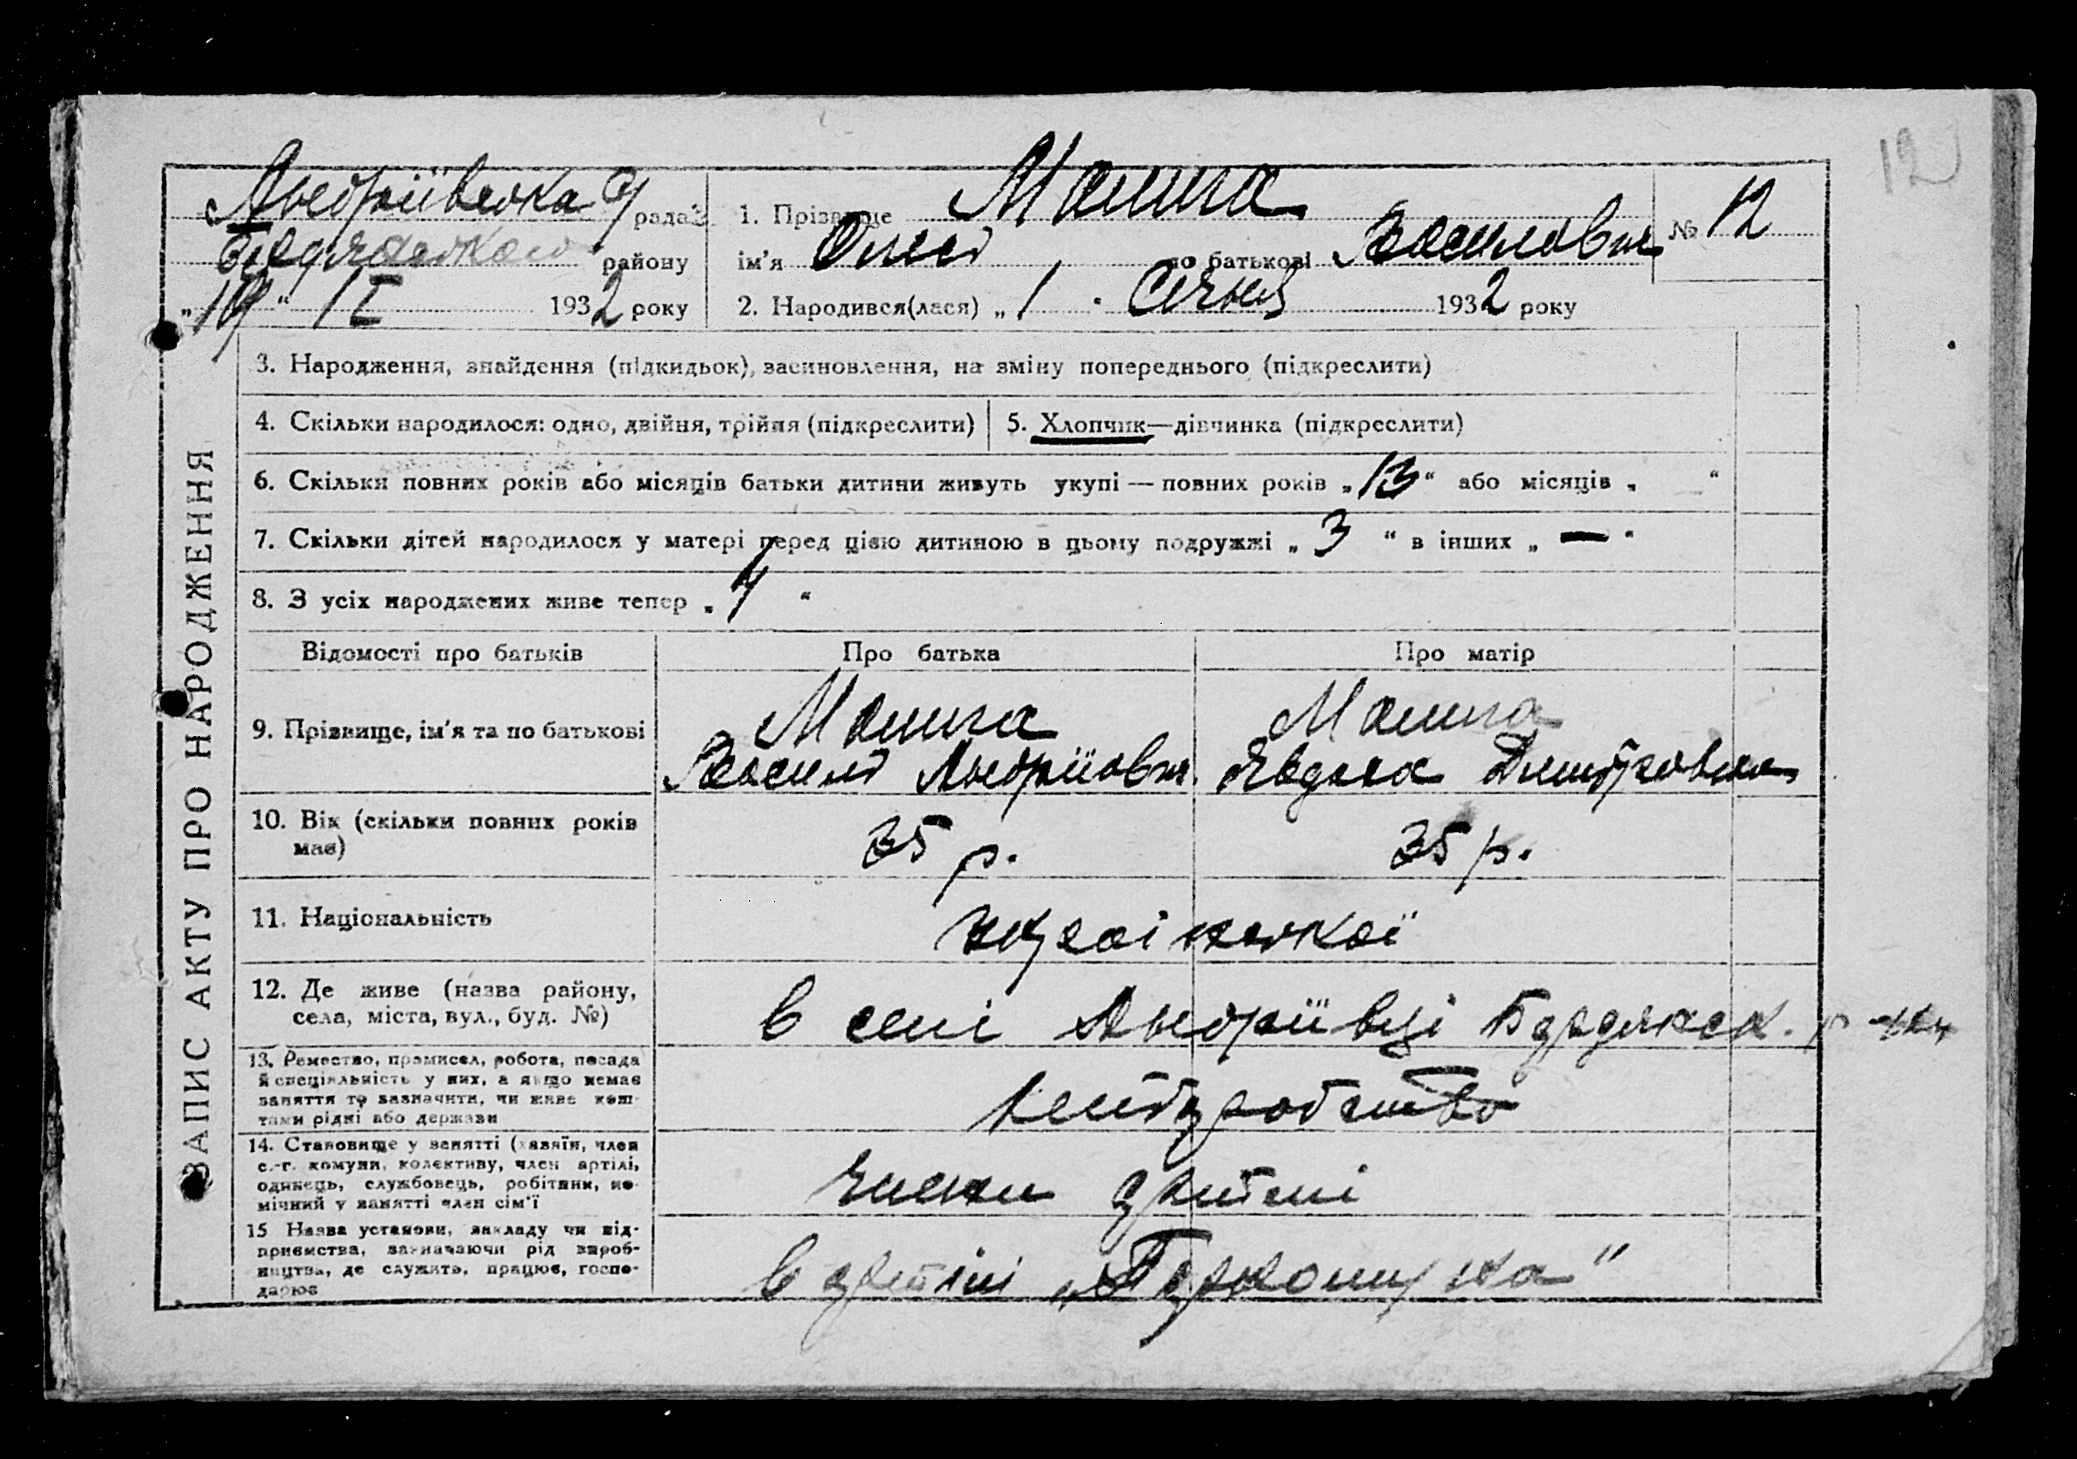 12
Андріївська с/рада
Бердянського району
„19“ II 1932 року
1. Прізвище
ім'я Олексій по батькові Васильович
№ 12
2. Народився(лася) „1“ Січня 1932 року
ЗАПИС АКТУ ПРО НАРОДЖЕННЯ
3. Народження, знайдення (підкидьок), засиновлення, на зміну попереднього (підкреслити)
4. Скільки народилося: одно, двійня, трійня (підкреслити)
5. Хлопчик—дівчинка (підкреслити)
6. Скільки повних років або місяців батьки дитини живуть укупі — повних років „13“ або місяців „ “
7. Скільки дітей народилося у матері перед цією дитиною в цьому подружжі „3“ в інших „—“
8. З усіх народжених живе тепер „4“
Відомості про батьків
Про батька
Про матір
9. Прізвище, ім'я та по батькові
Василь Андрійович
Явдоха Дмитровна
10. Вік (скільки повних років
має)
35 р.
35 р.
11. Національність
української
12. Де живе (назва району,
села, міста, вул., буд. №)
в селі Андріївці Бердянськ. р-ну
13. Ремество, промисел, робота, посада
й спеціяльність у них, а якщо немає
заняття то зазначити, чи живе кош-
тами рідні або держави
хліборобство
14. Становище у занятті (хазяїн, член
с.-г. комуни, колективу, член артілі,
одинець, службовець, робітник, по-
мічний у занятті член сім'ї
члени артілі
15 Назва установи, закладу чи під-
приємства, зазначаючи рід вироб-
ництва, де служить, працює, госпо-
дарює
в артілі